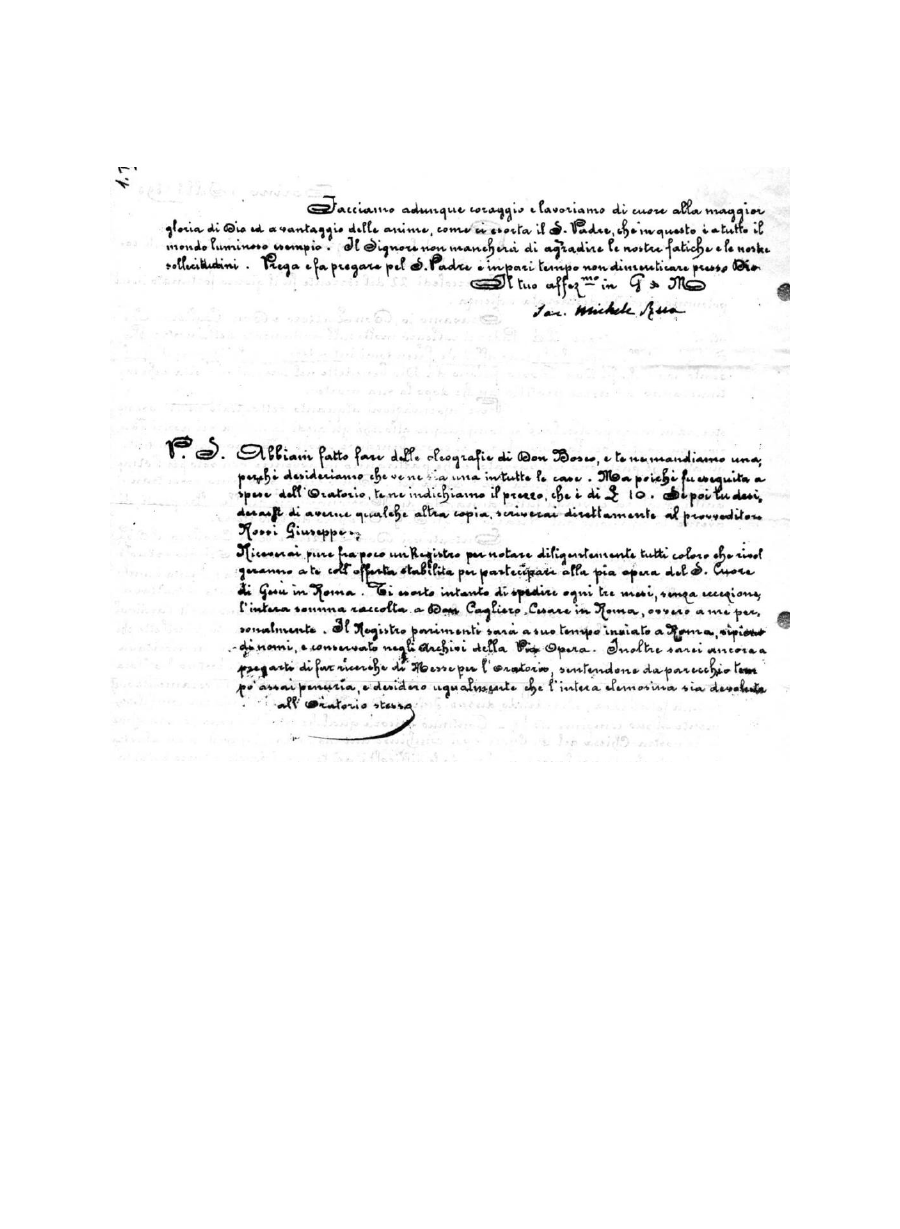 Facciamo adunque coraggio e lavoriamo di cuore alla maggior
gloria di Dio ed a vantaggio delle anime, come ci esorta il S. Padre, che in questo è a tutto il
mondo luminoso esempio. Il Signore non mancherà di aggradire le nostre fatiche e le nostre
sollecitudini. Prega e fa pregare pel S. Padre e in pari tempo non dimenticare presso Dio
Il tuo affez.mo in G e M
Sac. Michele Rua
P. S. Abbiam fatto fare delle oleografie di Don Bosco, e te ne mandiamo una,
perchè desideriamo che ve ne sia una in tutte le case. Ma poichè fu eseguita a
spese dell'Oratorio, te ne indichiamo il prezzo, che è di £ 10. Se poi tu desi,
derassi di averne qualche altra copia, scriverai direttamente al provveditore
Rossi Giuseppe
Riceverai pure fra poco un Registro per notare diligentemente tutti coloro che rivol
geranno a te coll'offerta stabilita per partecipare alla pia opera del S. Cuore
di Gesù in Roma. Ti esorto intanto di spedire ogni tre mesi, senza eccezione,
l'intera somma raccolta a Don Cagliero Cesare in Roma, ovvero a me per,
sonalmente. Il Registro parimenti sarà a suo tempo inviato a Roma, ripieno
di nomi, e conservato negli Archivi della Pia Opera. Inoltre sarei ancora a
pregarti di far ricerche di Messe per l'Oratorio, sentendone da parecchio tem
po assai penuria, e desidero ugualmente che l'intera elemosina sia devoluta
all'Oratorio stesso